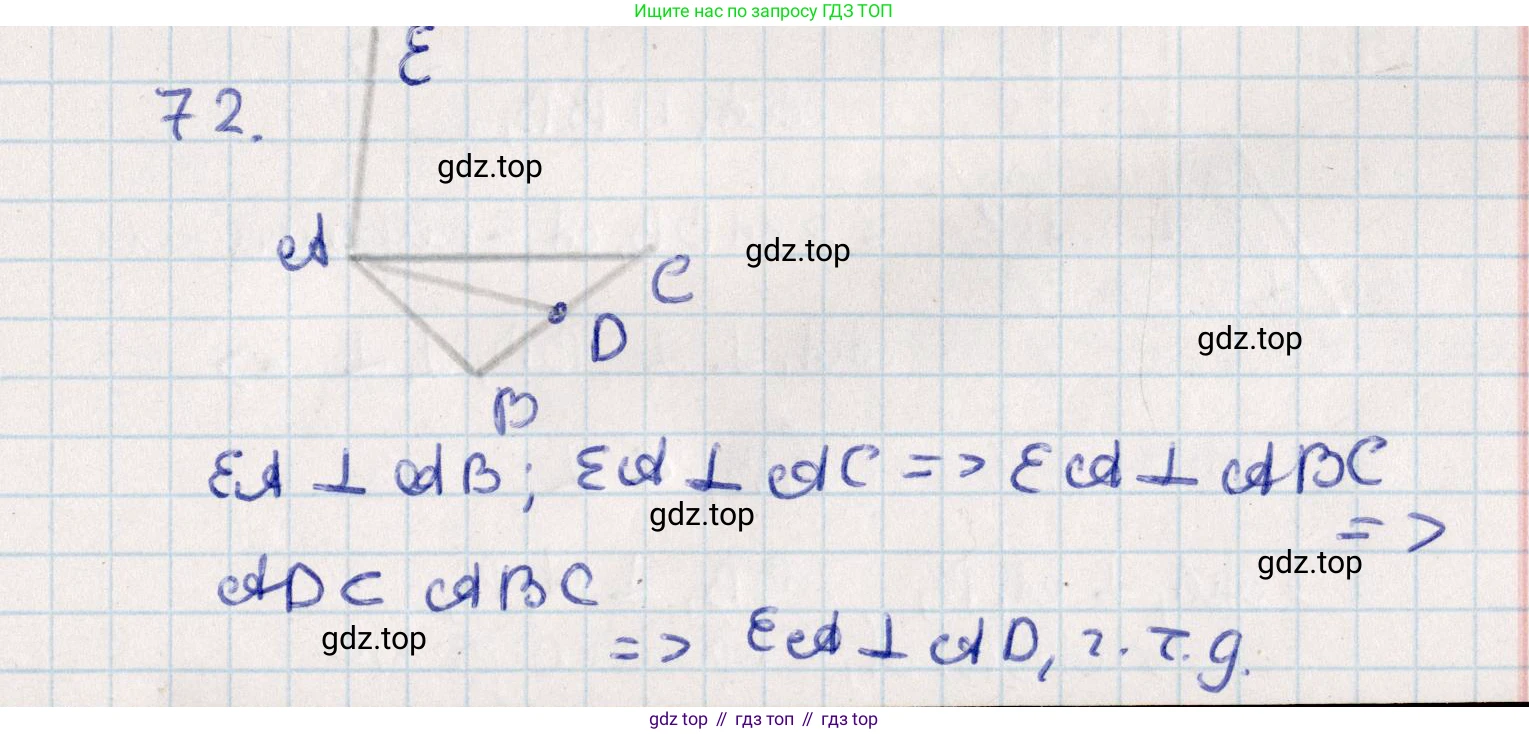 Ищите нас по запросу ГДЗ ТОП
E
72.
gdz.top
A
gdz.top
C
D
gdz.top
B
EA ⊥ AB; EA ⊥ AC => EA ⊥ ABC
gdz.top
=>
gdz.top
AD ⊂ ABC
gdz.top
=> EA ⊥ AD, ч.т.д.
gdz top // гдз топ // гдз top